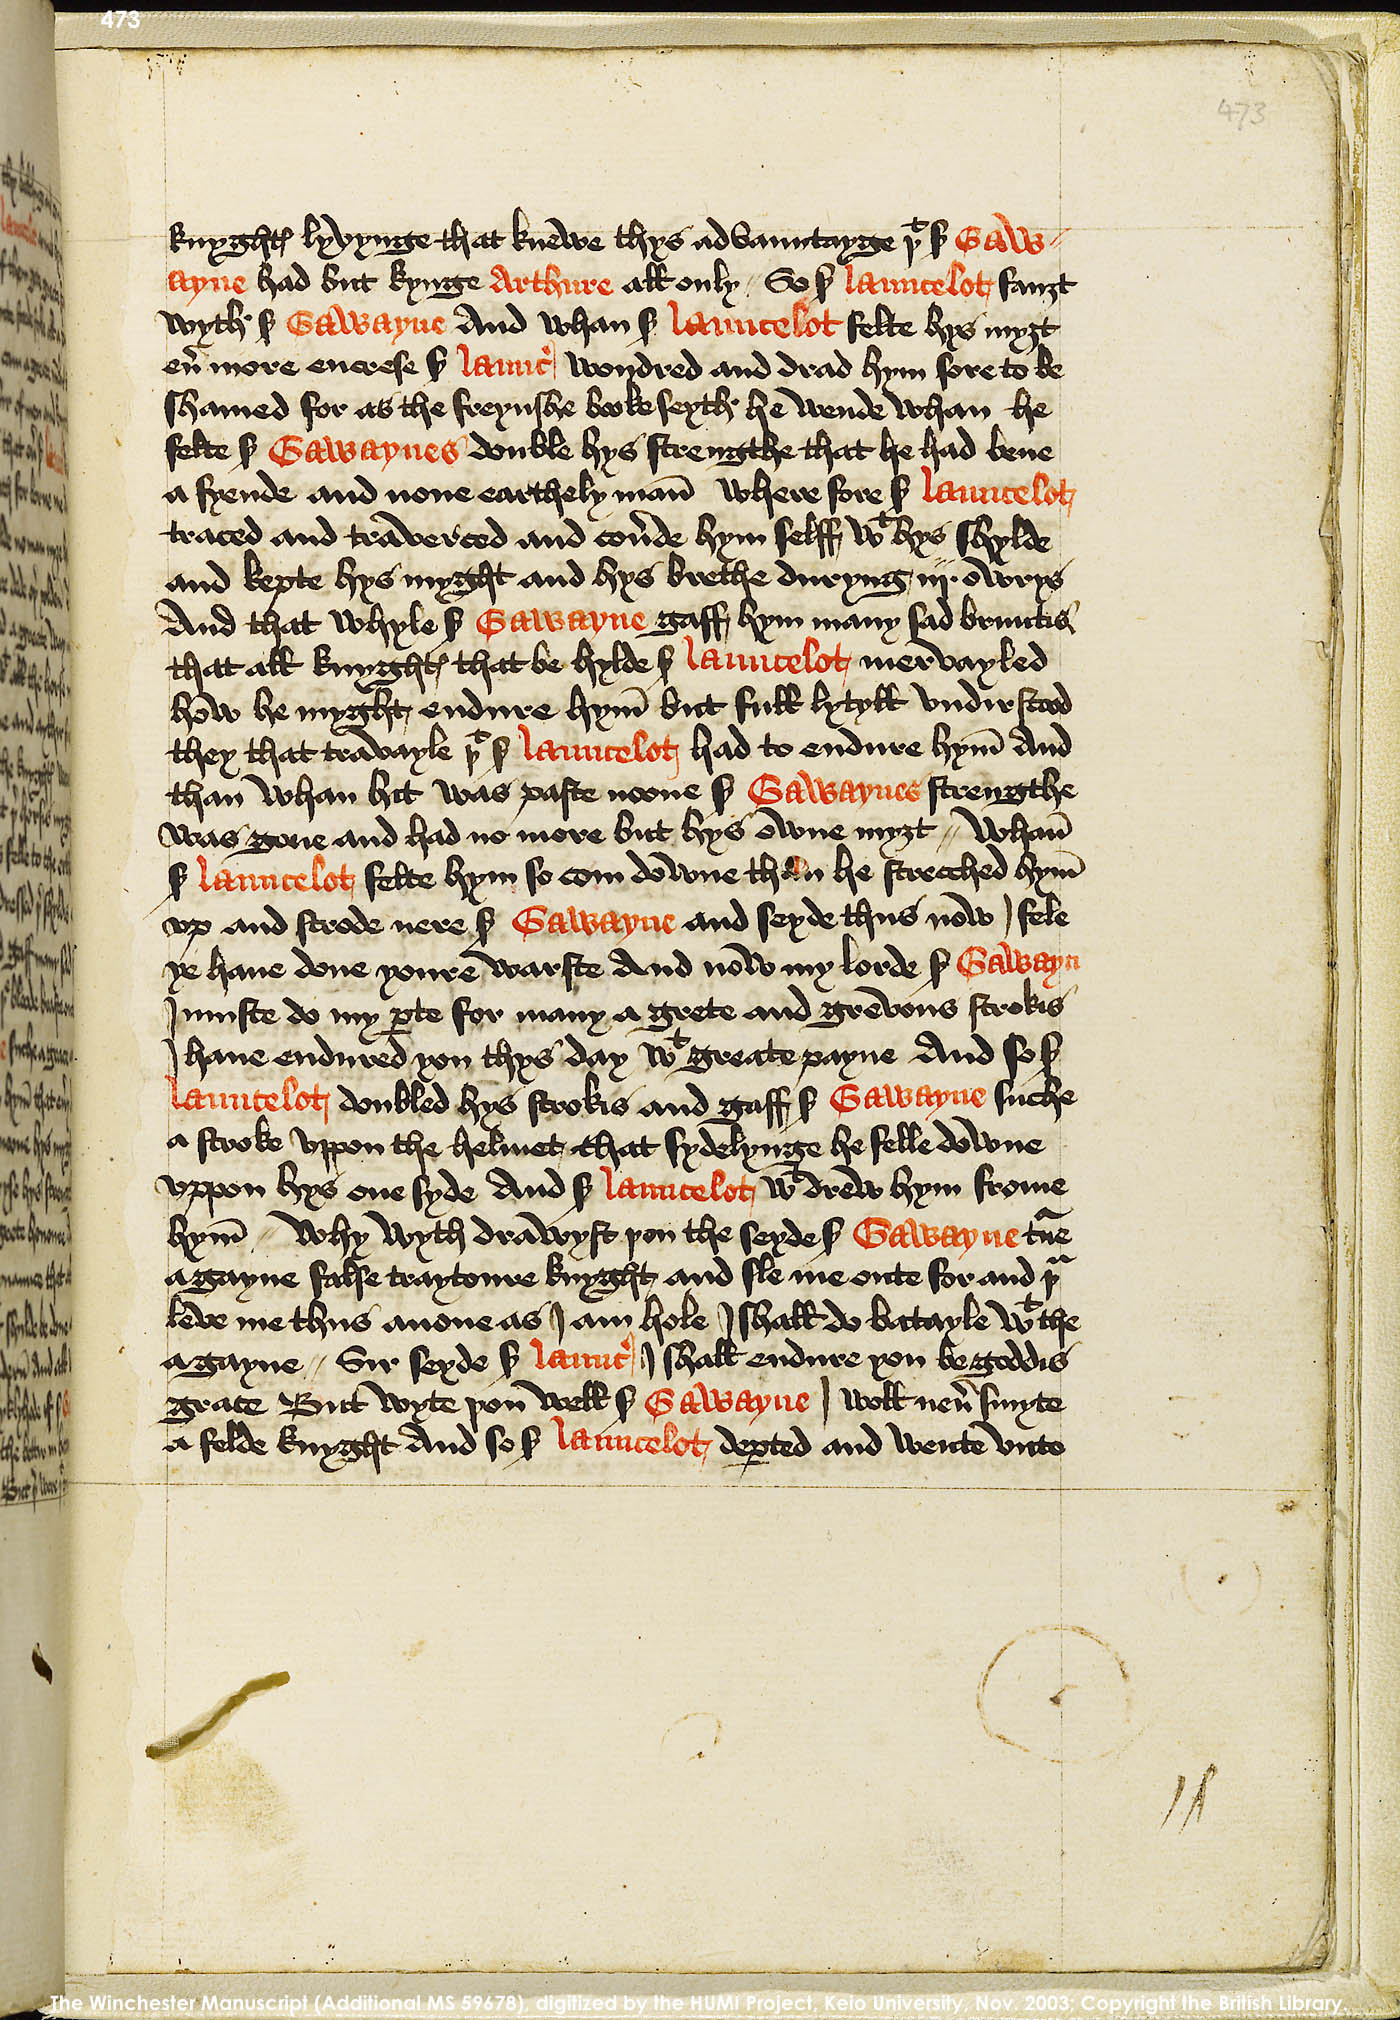 473
473
knyght lyvynge that knewe thys advauntayge þt sꝰ Gaw-
ayne had but kynge Arthure all only // So sꝰ launcelot fauȝt
wyth sꝰ Gawayne And whan sꝰ launcelot felte hys myȝt
eu̅ more encrese sꝰ launc̉ wondred and drad hym sore to be
shamed for as the freynshe booke seyth he wende whan he
felte sꝰ Gawaynes double hys strengthe that he had bene
a fyende and none earthely man̅ where fore sꝰ launcelot
traced and traverced and cou̅de hym selff wt hys shylde
and kepte hys myght and hys brethe duryng iij owrys
And that whyle sꝰ Gawayne gaff hym many sad bruntis
that all knyght that be hylde sꝰ launcelot mervayled
how he myght endure hym̅ but full lytyll vndirstood
they that travayle þt sꝰ launcelot had to endure hym̅ And
than whan hit was paste noone sꝰ Gawaynes strengthe
was gone and had no more but hys owne myȝt // Whan̅
sꝰ launcelot felte hym so com downe than he strecched hym̅
vp and strode nere sꝰ Gawayne and seyde thus now I fele
ye haue done youre warste And now my lorde sꝰ Gawayn
I muste do my ꝑte for many a grete and grevous strokis
I haue endured you thys day wt greate payne And so sꝰ
launcelot doubled hys strokis and gaff sꝰ Gawayne suche
a stroke vppon the helmet that sydelynge he felle downe
vppon hys one syde And sꝰ launcelot wt drew hym frome
hym̅ // Why wyth drawyst þou the seyde sꝰ Gawayne tne
agayne false traytoure knyght and sle me oute for and þu
leve me thus anone as I am hole I shall do batayle wt the
agayne // Sir seyde sꝰ launc̉ I shall endure you be goddis
grace But wyte þou well sꝰ Gawayne I woll neu̅ smyte
a felde knyght And so sꝰ launcelot deꝑted and wente vnto
The Winchester Manuscript (Additional MS 59678), digitized by the HUMI Project, Keio University, Nov. 2003; Copyright the British Library.